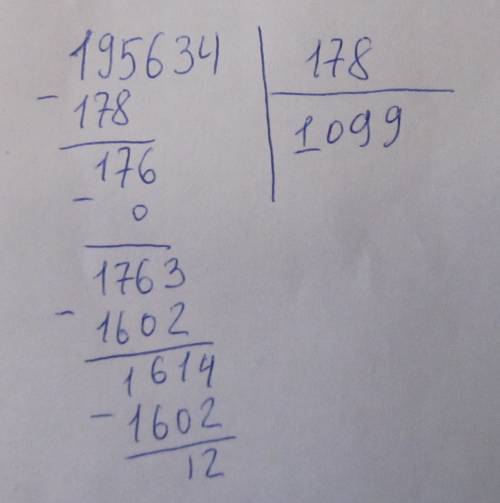 195634 | 178
- 178 | 1099
176
- 0
1763
- 1602
1614
- 1602
12